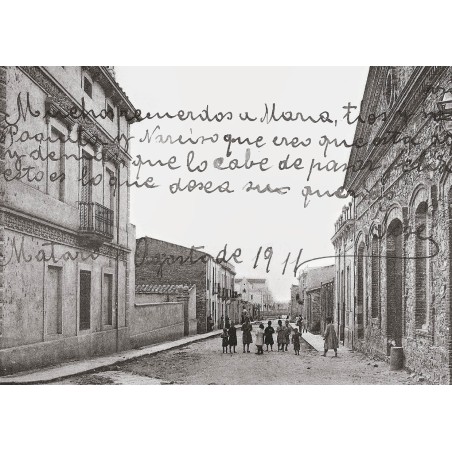 Muchos recuerdos a Maria, tios y
Paquita y Narciso que creo que esta
y demas que lo cabe de pasar feliz
esto es lo que desea su
Mataró Agosto de 1911